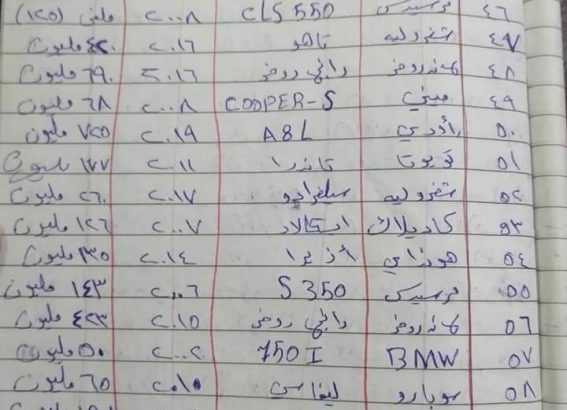 ٤٦ مرسيدس CLS 550 ٢٠٠٨ ملغي (١٢٥)
٤٧ شفروليه تاهو ٢٠١٦ مليون
٤٨ لاند روفر رانج روفر ٢٠١٦ ٦٩٠ مليون
٤٩ ميني COOPER-S ٢٠٠٨ ٦٨ مليون
٥٠ أودي A8L ٢٠١٩ ٧٢٥ مليون
٥١ تويوتا تاندرا ٢٠١١ ١٧٧ مليون
٥٢ شفروليه سلفرادو ٢٠١٧ ٢٦٠ مليون
٥٣ كاديلاك اسكالاد ٢٠٠٧ ١٢٦ مليون
٥٤ هونداي أزيرا ٢٠١٤ ١٣٥ مليون
٥٥ مرسيدس S 350 ٢٠٠٦ ١٤٣ مليون
٥٦ لاند روفر رانج روفر ٢٠١٥ ٤٢٣ مليون
٥٧ BMW 750I ٢٠٠٢ ٥٠ مليون
٥٨ سوبارو ليغاسي ٢٠١٠ ٦٥ مليون